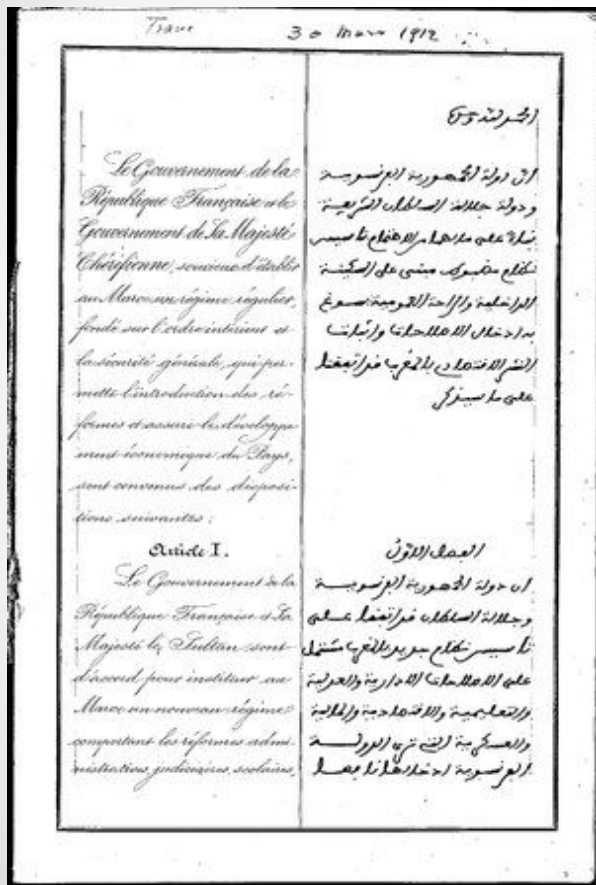 30 Mars 1912
Le Gouvernement de la
République Française et le
Gouvernement de Sa Majesté
Chérifienne, soucieux d'établir
au Maroc un régime régulier,
fondé sur l'ordre intérieur et
la sécurité générale, qui per-
mette l'introduction des ré-
formes et assure le développe
ment économique du Pays,
sont convenus des disposi
tions suivantes :
Article I.
Le Gouvernement de la
République Française et Sa
Majesté le Sultan sont
d'accord pour instituer au
Maroc un nouveau régime
comportant les réformes admi
nistratives, judiciaires, scolaires,
الحمد لله
ان دولة الجمهورية الفرنسوية
ودولة جلالة السلطان الشريفة
بناء على ما لهما من الاهتمام بتاسيس
نظام مضبوط مبنى على السكينة
الداخلية والراحة العمومية يسوغ
به ادخال الاصلاحات واثبات
النشر الاقتصادي بالمغرب قد اتفقتا
على ما سيذكر
الفصل الاول
ان دولة الجمهورية الفرنسوية
وجلالة السلطان قد اتفقا على
تاسيس نظام جديد بالمغرب مشتمل
على الاصلاحات الادارية والعدلية
والتعليمية والاقتصادية والمالية
والعسكرية التى ترى الدولة
الفرنسوية ادخالها نافعا